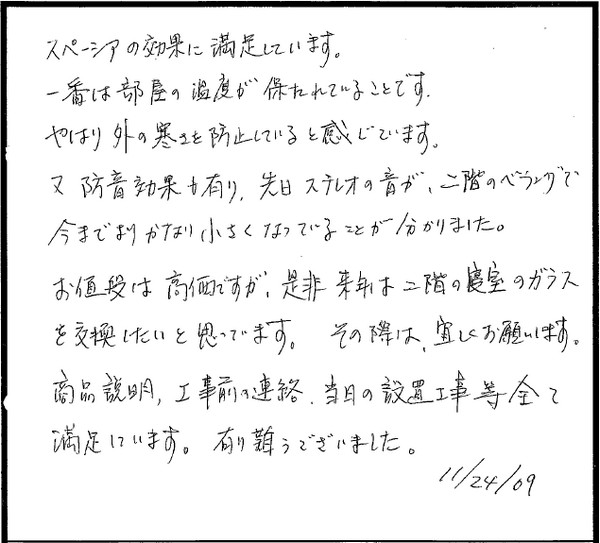 スペーシアの効果に満足しています。
一番は部屋の温度が保たれていることです。
やはり外の寒さを防止していると感じています。
又防音効果も有り、先日ステレオの音が、二階のベランダで
今までよりかなり小さくなっていることが分かりました。
お値段は高価ですが、是非来年は二階の寝室のガラス
を交換したいと思っています。その際は、宜しくお願いします。
商品説明、工事前の連絡、当日の設置工事等全て
満足しています。有り難うございました。
11/24/09